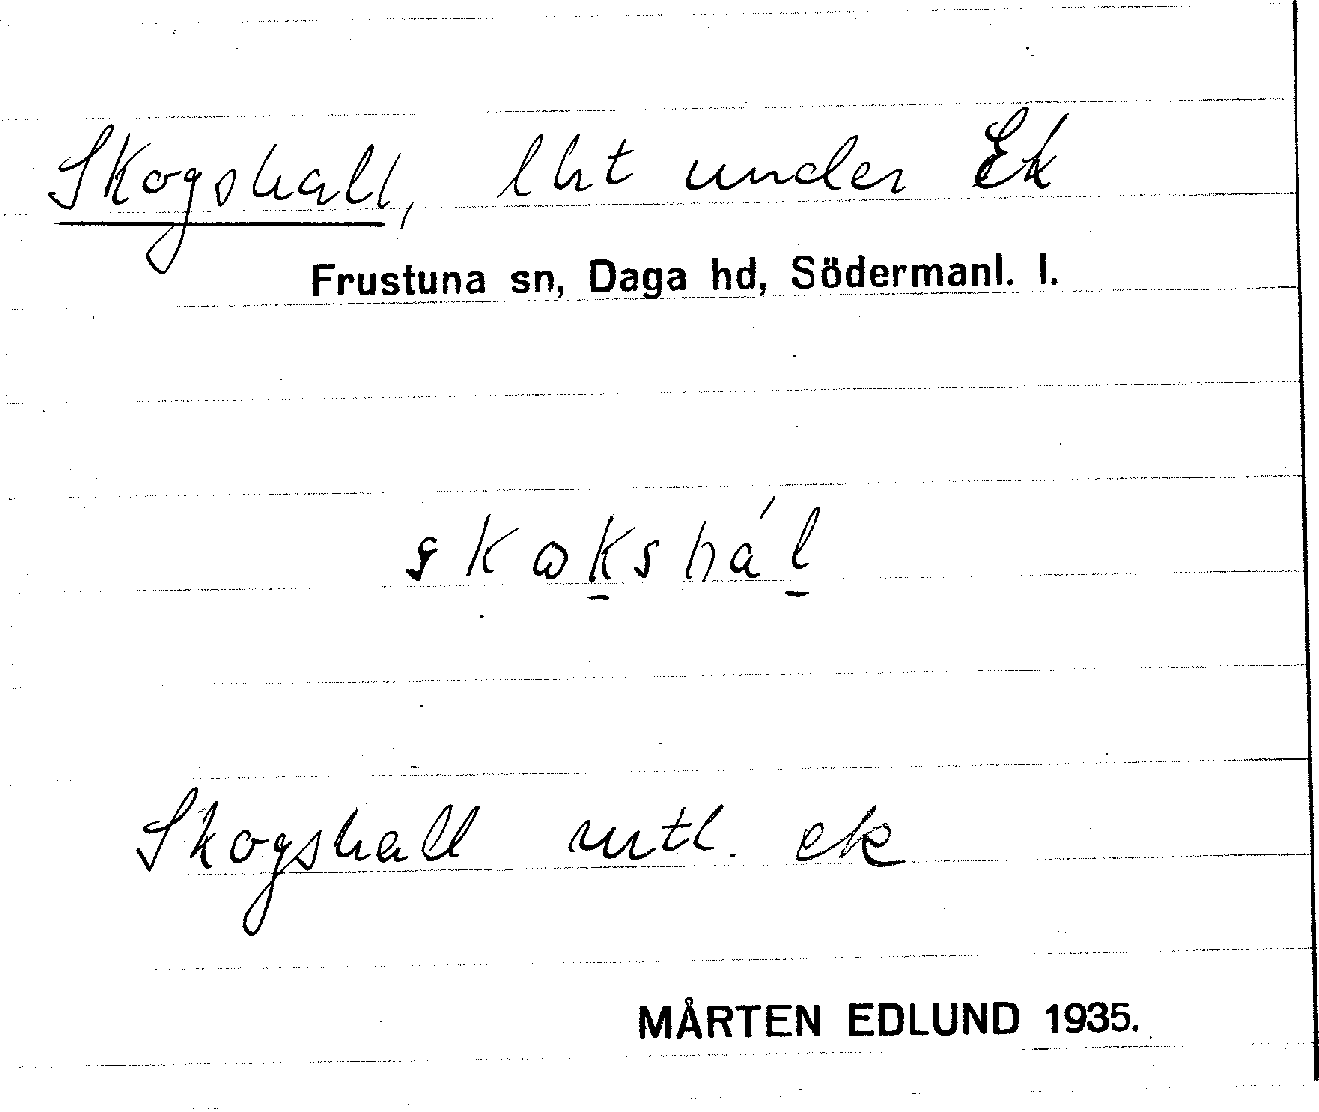 Skogshall, lht under Ek
Frustuna sn, Daga hd, Södermanl. l.
skokshál
Skogshall mtl. ek
MÅRTEN EDLUND 1935.